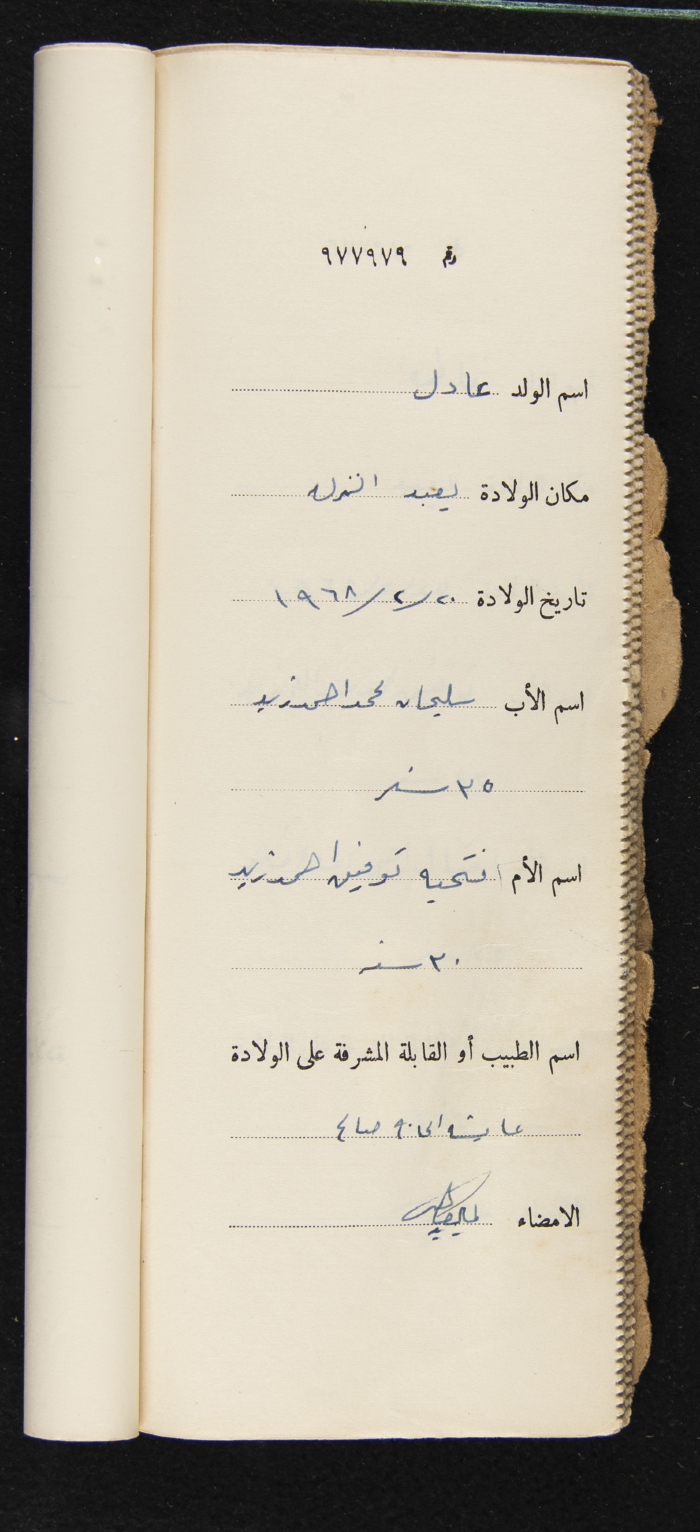 رقم ٩٧٧٩٧٩
اسم الولد عادل
مكان الولادة يعبد النزله
تاريخ الولادة ٢٠/٢/١٩٦٨
اسم الأب سليمان محمد احمد زيد
٣٥ سنه
اسم الأم فتحيه توفيق احمد زيد
٣٠ سنه
اسم الطبيب أو القابلة المشرفة على الولادة
عايشه الحاج صالح
الامضاء